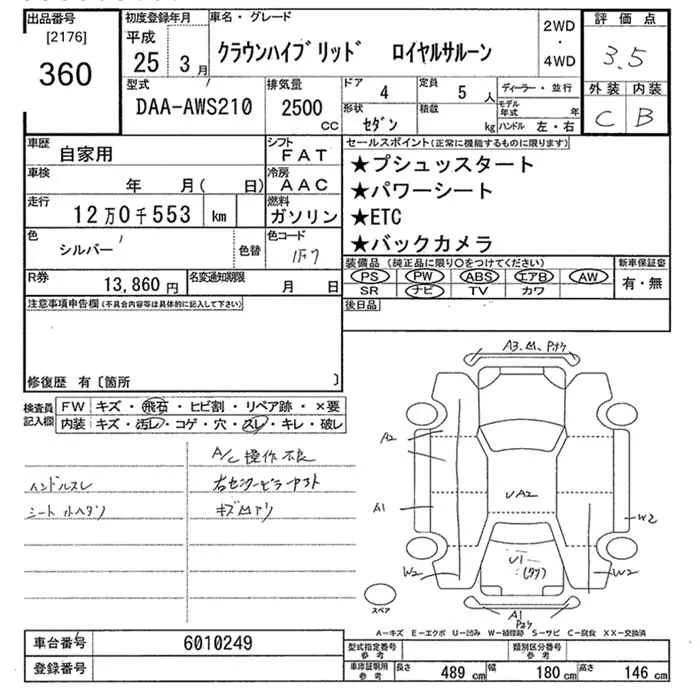 出品番号
[2176]
360
初度登録年月
平成
25 3月
車名・グレード
クラウンハイブリッド ロイヤルサルーン
2WD
・
4WD
評価点
3.5
外装 内装
C B
型式
DAA-AWS210
排気量
2500
CC
ドア 4
定員 5 人
形状
セダン
積載
kg
ディーラー・並行
モデル年式 年
ハンドル 左・右
車歴 自家用
シフト FAT
車検 年 月( 日)
冷房 AAC
走行 12万0千553 km
燃料 ガソリン
色 シルバー
色替
色コード 1F7
R券 13,860 円
名変通知期限 月 日
セールスポイント(正常に機能するものに限ります)
★プシュッスタート
★パワーシート
★ETC
★バックカメラ
装備品 (純正品に限り○をつけてください)
PS PW ABS エアB AW
SR ナビ TV カワ
新車保証書
有・無
後日品
注意事項申告欄(不具合内容等は具体的に記入して下さい)
修復歴 有〔箇所 〕
検査員記入欄
FW キズ・飛石・ヒビ割・リペア跡・×要
内装 キズ・汚レ・コゲ・穴・スレ・キレ・破レ
A/C 操作不良
ハンドルスレ
右センターピラーアウト
シート小ヘタリ
キズ凹アリ
A3.凹
A2
A1
UA2
W2
U1
W2
W2
A1
スペア
A-キズ E-エクボ U-凹み W-補修跡 S-サビ C-腐食 XX-交換済
車台番号 6010249
登録番号
型式指定番号
参考
類別区分番号
参考
車庫証明用
参考
長さ 489 cm 幅 180 cm 高さ 146 cm